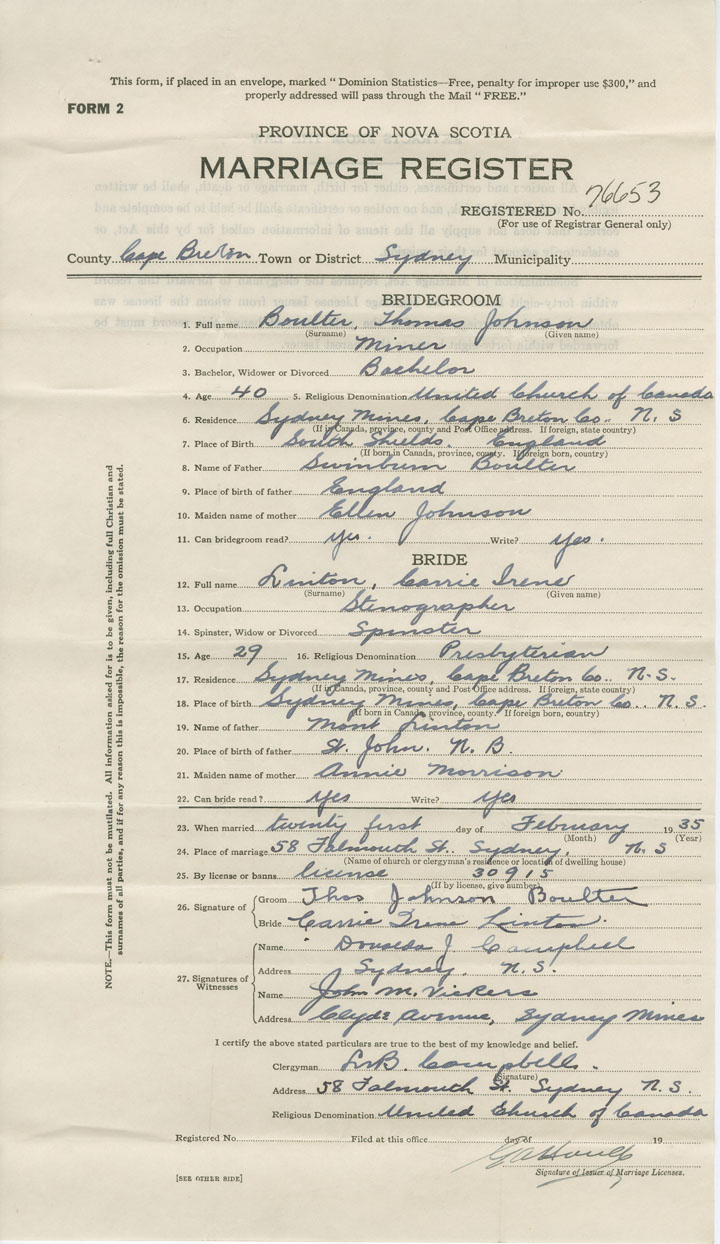 This form, if placed in an envelope, marked "Dominion Statistics—Free, penalty for improper use $300," and
properly addressed will pass through the Mail "FREE."
FORM 2
PROVINCE OF NOVA SCOTIA
MARRIAGE REGISTER
REGISTERED No. 76653
(For use of Registrar General only)
County Cape Breton Town or District Sydney Municipality
BRIDEGROOM
1. Full name Boulter, Thomas Johnson
(Surname) (Given name)
2. Occupation Miner
3. Bachelor, Widower or Divorced Bachelor
4. Age 40 5. Religious Denomination United Church of Canada
6. Residence Sydney Mines, Cape Breton Co. N. S
(If in Canada, province, county and Post Office address. If foreign, state country)
7. Place of Birth South Shields, England
(If born in Canada, province, county. If foreign born, country)
8. Name of Father Swinburn Boulter
9. Place of birth of father England
10. Maiden name of mother Ellen Johnson
11. Can bridegroom read? yes. Write? yes.
BRIDE
12. Full name Linton, Carrie Irene
(Surname) (Given name)
13. Occupation Stenographer
14. Spinster, Widow or Divorced Spinster
15. Age 29 16. Religious Denomination Presbyterian
17. Residence Sydney Mines, Cape Breton Co. N. S.
(If in Canada, province, county and Post Office address. If foreign, state country)
18. Place of birth Sydney Mines, Cape Breton Co. N. S.
(If born in Canada, province, county. If foreign born, country)
19. Name of father Mont Linton
20. Place of birth of father St. John. N. B.
21. Maiden name of mother Annie Morrison
22. Can bride read? Yes Write? yes
23. When married twenty first day of February 1935
(Month) (Year)
24. Place of marriage 58 Falmouth St. Sydney, N. S
(Name of church or clergyman's residence or location of dwelling house)
25. By license or banns license 30915
(If by license, give number)
26. Signature of
Groom Thos Johnson Boulter
Bride Carrie Irene Linton.
27. Signatures of Witnesses
Name J. Campbell
Address Sydney, N. S.
Name John M. Vickers
Address Clyde Avenue, Sydney Mines
I certify the above stated particulars are true to the best of my knowledge and belief.
Clergyman Campbell
(Signature)
Address 58 Falmouth St. Sydney N. S.
Religious Denomination United Church of Canada
Registered No. Filed at this office day of 19
Signature of Issuer of Marriage Licenses.
[SEE OTHER SIDE]
NOTE.—This form must not be mutilated. All information asked for is to be given, including full Christian and
surnames of all parties, and if for any reason this is impossible, the reason for the omission must be stated.